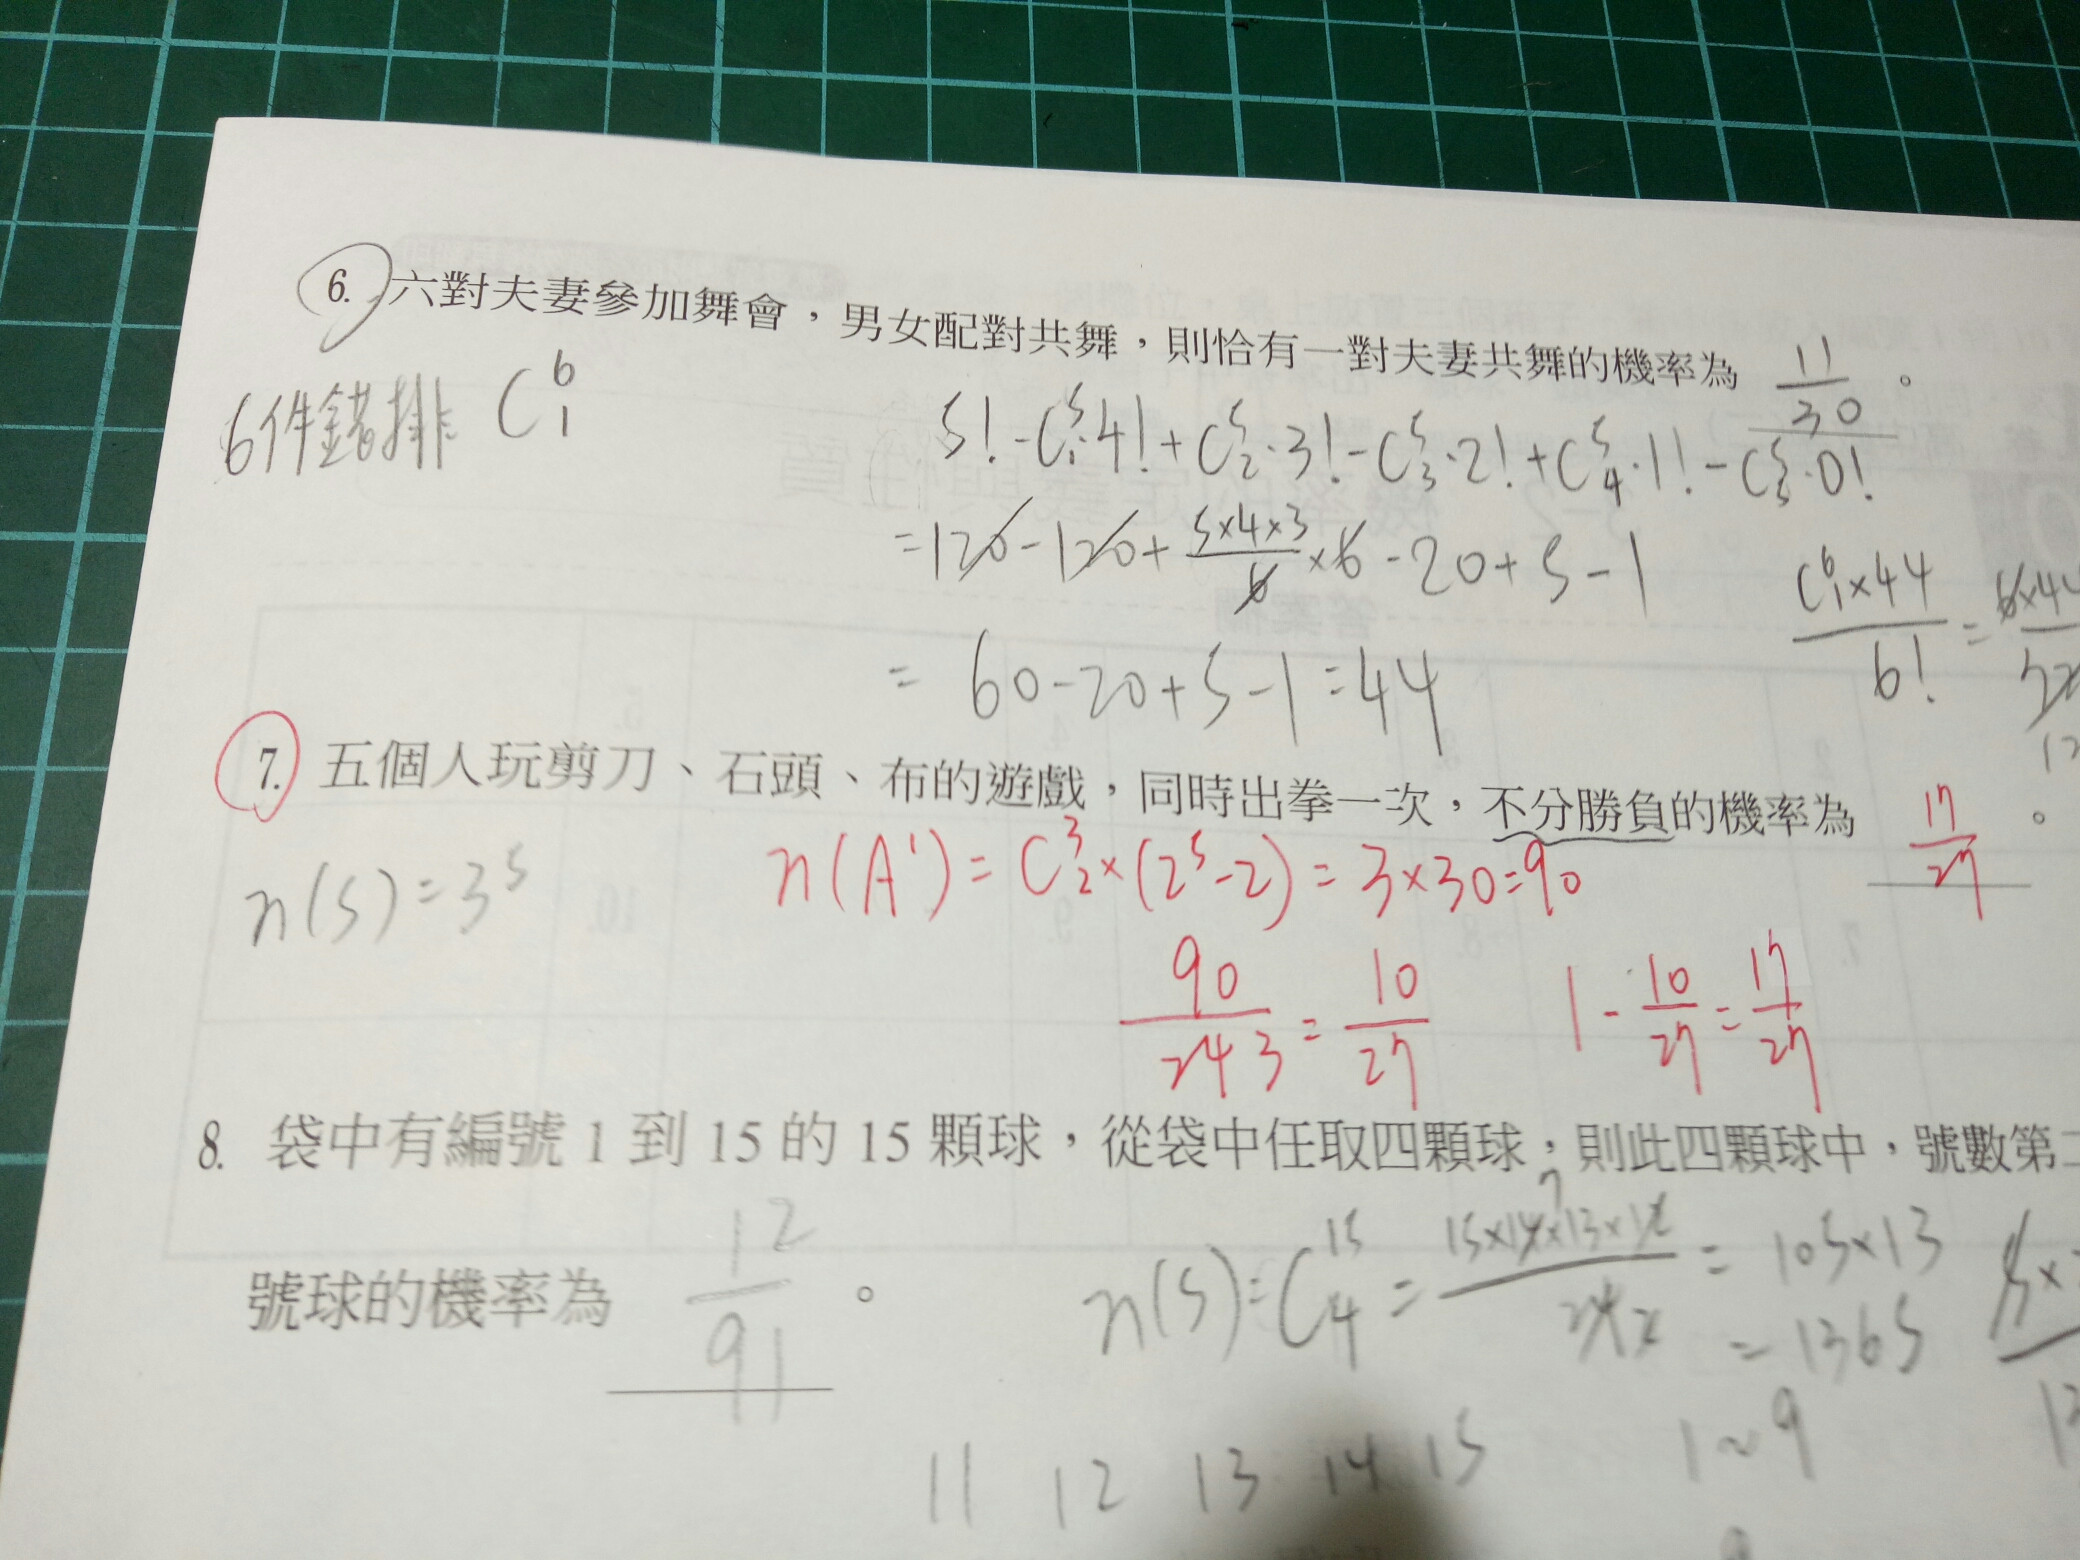 6. 六對夫妻參加舞會，男女配對共舞，則恰有一對夫妻共舞的機率為 11/30 。
6件錯排 C⁶₁
5! - C⁵₁·4! + C⁵₂·3! - C⁵₃·2! + C⁵₄·1! - C⁵₅·0!
= 120 - 120 + 5×4×3/6 ×6 - 20 + 5 - 1
= 60 - 20 + 5 - 1 = 44
C⁶₁×44/6! = 6×44
7. 五個人玩剪刀、石頭、布的遊戲，同時出拳一次，不分勝負的機率為 17/27 。
n(S) = 3⁵
n(A') = C³₂×(2⁵-2) = 3×30 = 90
90/243 = 10/27 1 - 10/27 = 17/27
8. 袋中有編號 1 到 15 的 15 顆球，從袋中任取四顆球，則此四顆球中，號數第二
號球的機率為 12/91 。
n(S) = C¹⁵₄ = 15×14×13×12/24 = 105×13
= 1365
11 12 13 14 15 1~9